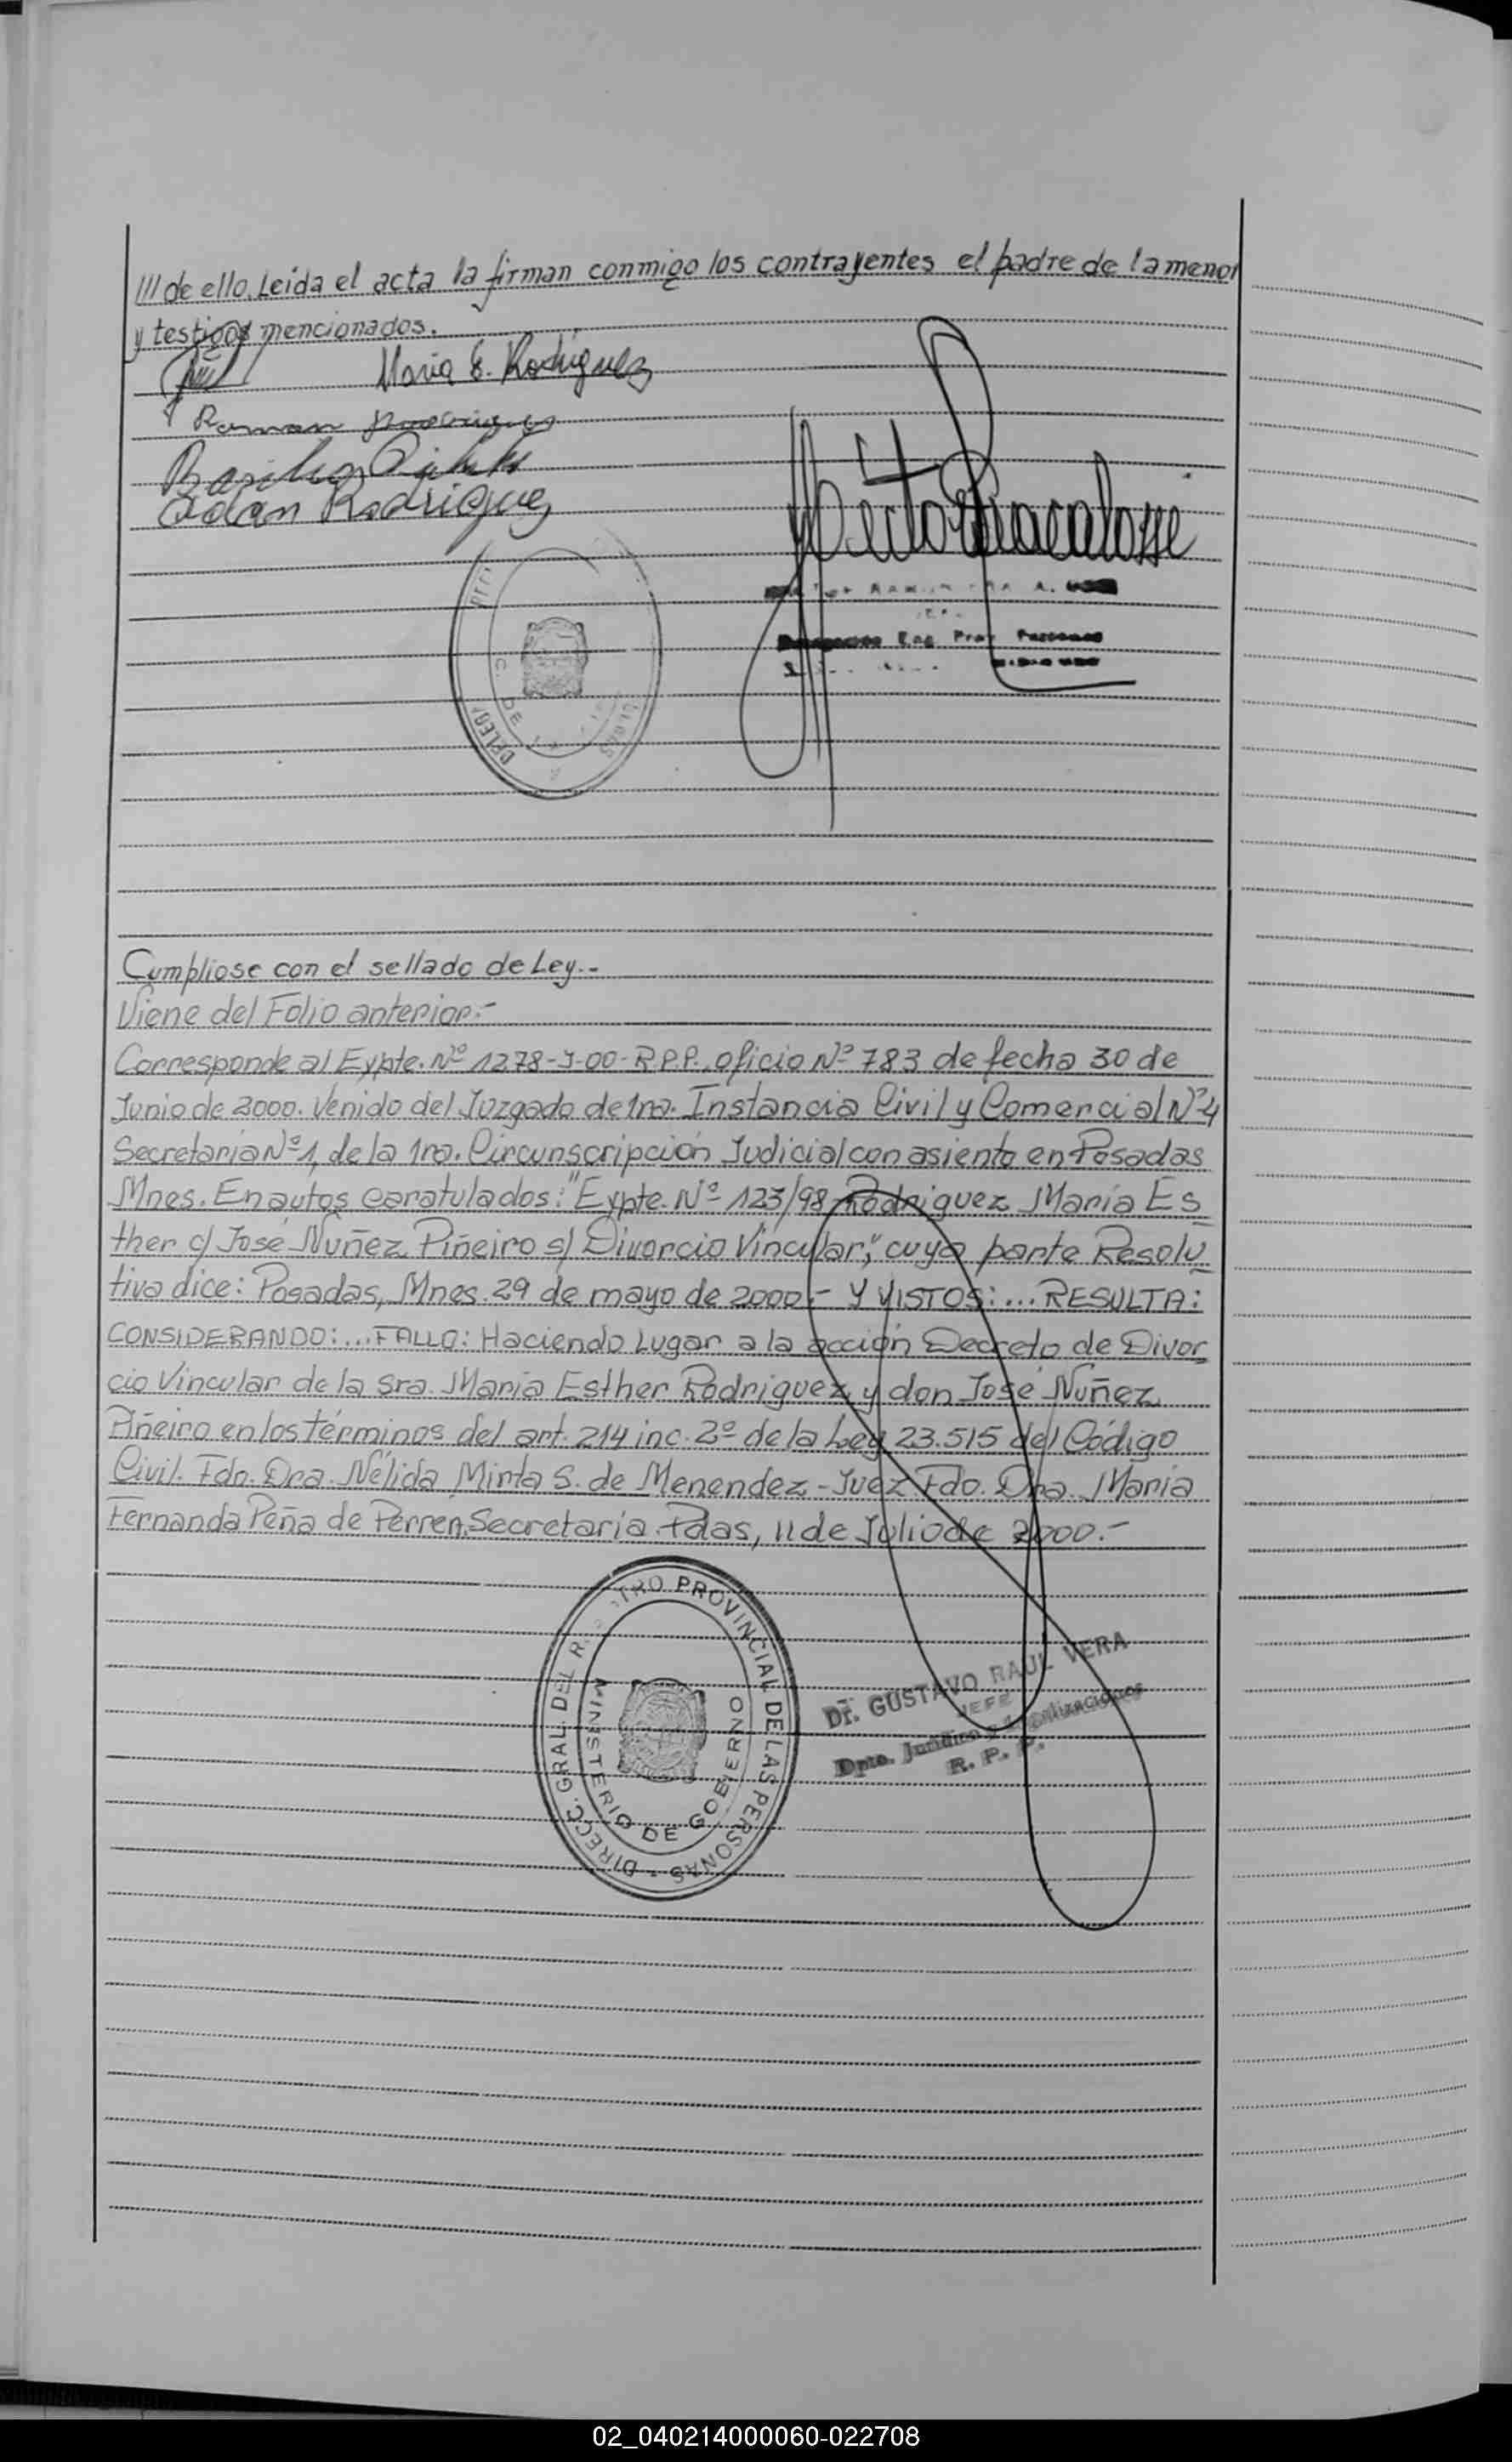 /// de ello. Leída el acta la firman conmigo los contrayentes el padre de la menor
y testigos mencionados.
Maria E. Rodriguez
Ramon Rodriguez
Basilio
Adan Rodriguez
Hector
Eng. Prov. Personas
DELEG
C. DE
Cumpliose con el sellado de Ley.-
Viene del Folio anterior:-
Corresponde al Expte. Nº 1278-J-00-R.P.P., oficio Nº 783 de fecha 30 de
Junio de 2000. Venido del Juzgado de 1ra. Instancia Civil y Comercial Nº 4
Secretaría Nº 1, de la 1ra. Circunscripción Judicial con asiento en Posadas
Mnes. En autos caratulados: "Expte. Nº 123/98 Rodriguez María Es
ther c/ José Nuñez Piñeiro s/ Divorcio Vincular", cuya parte Resolu
tiva dice: Posadas, Mnes. 29 de mayo de 2000.- Y VISTOS: ... RESULTA:
CONSIDERANDO: ... FALLO: Haciendo Lugar a la acción Decreto de Divor
cio Vincular de la Sra. María Esther Rodriguez y don José Nuñez
Piñeiro en los términos del art. 214 inc. 2º de la Ley 23.515 del Código
Civil. Fdo. Dra. Nélida Mirta S. de Menendez - Juez Fdo. Dra. María
Fernanda Peña de Perren, Secretaria. Pdas, 11 de Julio de 2000.-
DIRECC. GRAL. DEL REGISTRO PROVINCIAL DE LAS PERSONAS -
MINISTERIO DE GOBIERNO
Dr. GUSTAVO RAUL VERA
JEFE
Dpto. Jurídico y Legalizaciones
R. P. P.
02_040214000060-022708